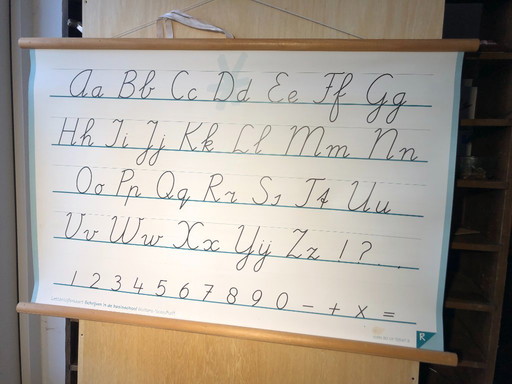 Aa Bb Cc Dd Ee Ff Gg
Hh Ii Jj Kk Ll Mm Nn
Oo Pp Qq Rr Ss Tt Uu
Vv Ww Xx Yy Zz ! ? . .
1 2 3 4 5 6 7 8 9 0 - + x =
R